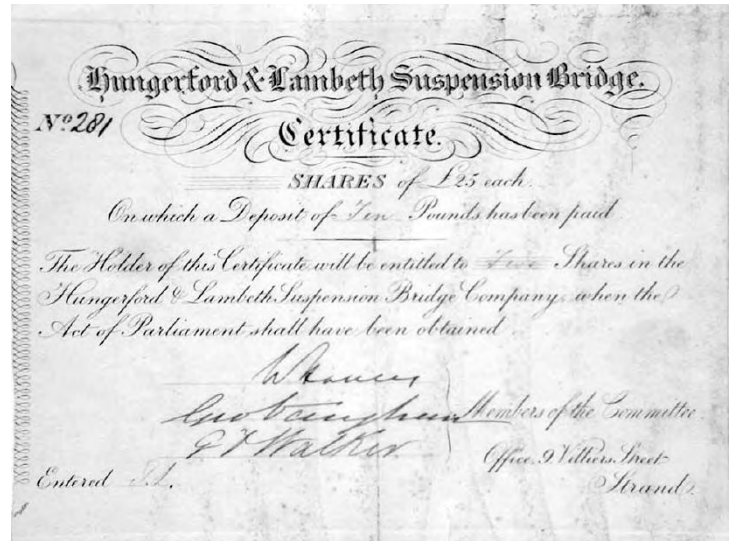 Hungerford & Lambeth Suspension Bridge.
Nº 281
Certificate.
SHARES of £25 each.
On which a Deposit of Ten Pounds has been paid
The Holder of this Certificate will be entitled to Five Shares in the
Hungerford & Lambeth Suspension Bridge Company, when the
Act of Parliament shall have been obtained.
Members of the Committee.
G T Walker
Office, 9 Villiers Street
Strand.
Entered